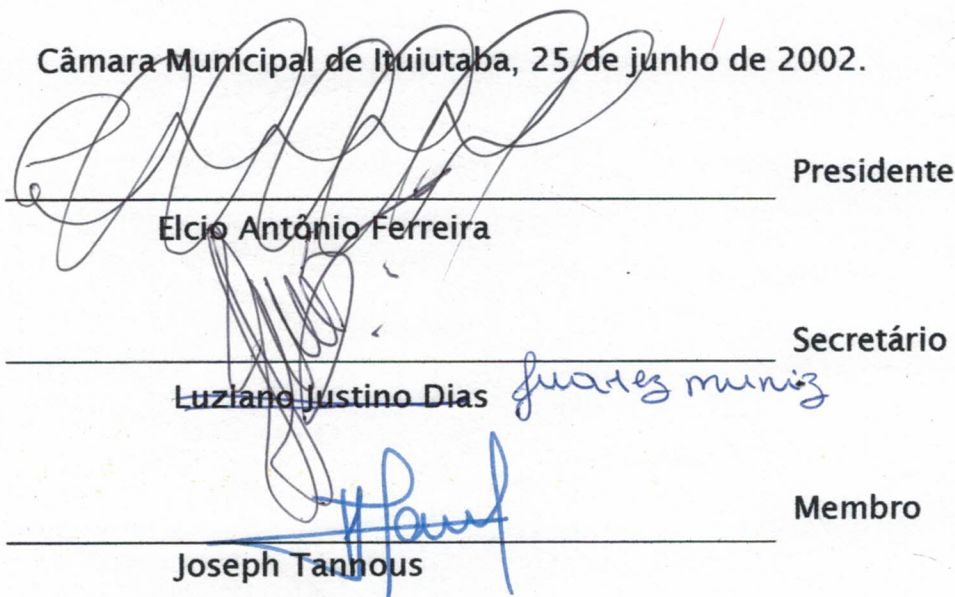 Câmara Municipal de Ituiutaba, 25 de junho de 2002.
Presidente
Elcio Antônio Ferreira
Secretário
Luziano Justino Dias Juarez muniz
Membro
Joseph Tannous